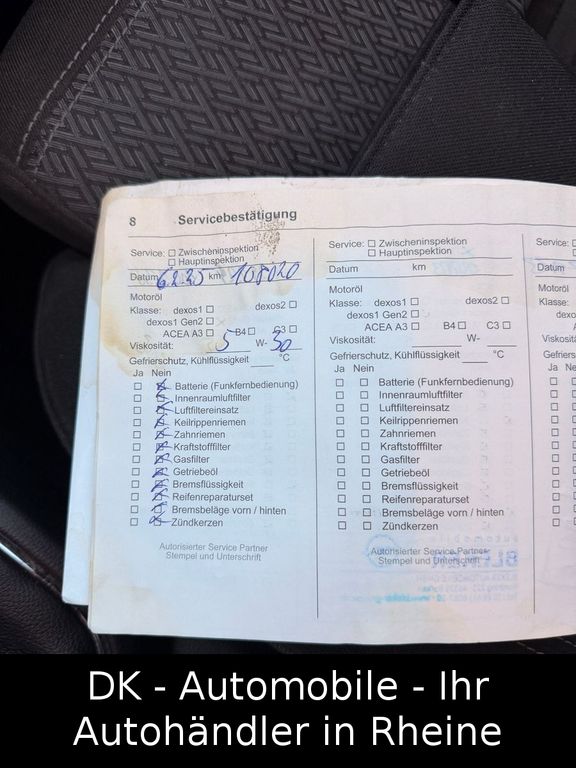 8 Servicebestätigung
Service: ☐ Zwischeninspektion
☐ Hauptinspektion
Datum 6.2.25 km 108020
Motoröl
Klasse: dexos1 ☐ dexos2 ☐
dexos1 Gen2 ☐
ACEA A3 ☐ B4 ☐ C3 ☐
Viskosität: 5 W- 30
Gefrierschutz, Kühlflüssigkeit °C
Ja Nein
Batterie (Funkfernbedienung)
Innenraumluftfilter
Luftfiltereinsatz
Keilrippenriemen
Zahnriemen
Kraftstofffilter
Gasfilter
Getriebeöl
Bremsflüssigkeit
Reifenreparaturset
Bremsbeläge vorn / hinten
Zündkerzen
Autorisierter Service Partner
Stempel und Unterschrift
Service: ☐ Zwischeninspektion
☐ Hauptinspektion
Datum km
Motoröl
Klasse: dexos1 ☐ dexos2 ☐
dexos1 Gen2 ☐
ACEA A3 ☐ B4 ☐ C3 ☐
Viskosität: W-
Gefrierschutz, Kühlflüssigkeit °C
Ja Nein
Batterie (Funkfernbedienung)
Innenraumluftfilter
Luftfiltereinsatz
Keilrippenriemen
Zahnriemen
Kraftstofffilter
Gasfilter
Getriebeöl
Bremsflüssigkeit
Reifenreparaturset
Bremsbeläge vorn / hinten
Zündkerzen
Autorisierter Service Partner
Stempel und Unterschrift
Service: ☐
Datum
Motoröl
Klasse:
Viskosität:
Ja
DK - Automobile - Ihr
Autohändler in Rheine